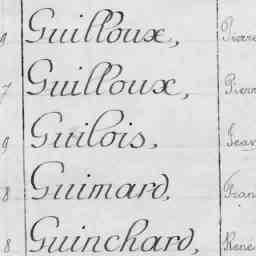 9 Guilloux, Pierre
7 Guilloux, Pierr
9 Guilois, Jean
8 Guimard, Fran
8 Guinchard, René